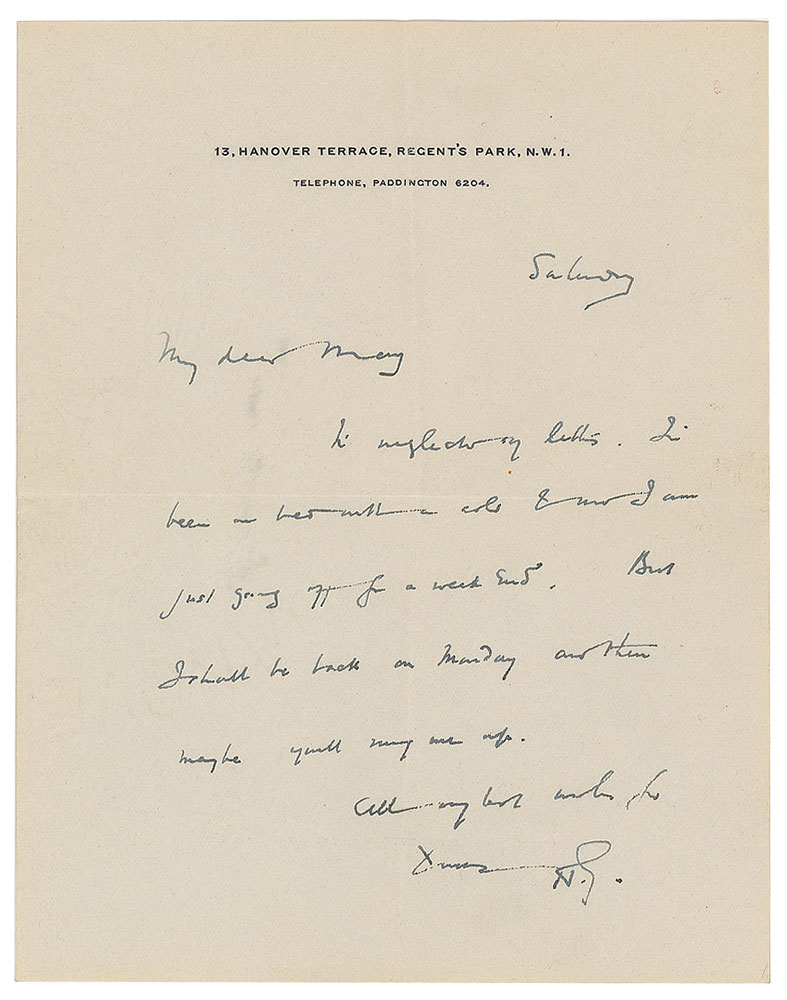 13, HANOVER TERRACE, REGENT'S PARK, N.W.1.
TELEPHONE, PADDINGTON 6204.
Saturday
My dear May
neglected my letters. I've
been in bed with a cold & now I am
just going off for a week end. But
I shall be back on Monday and then
maybe you'll ring me up.
All my best wishes for
Xmas H.G.